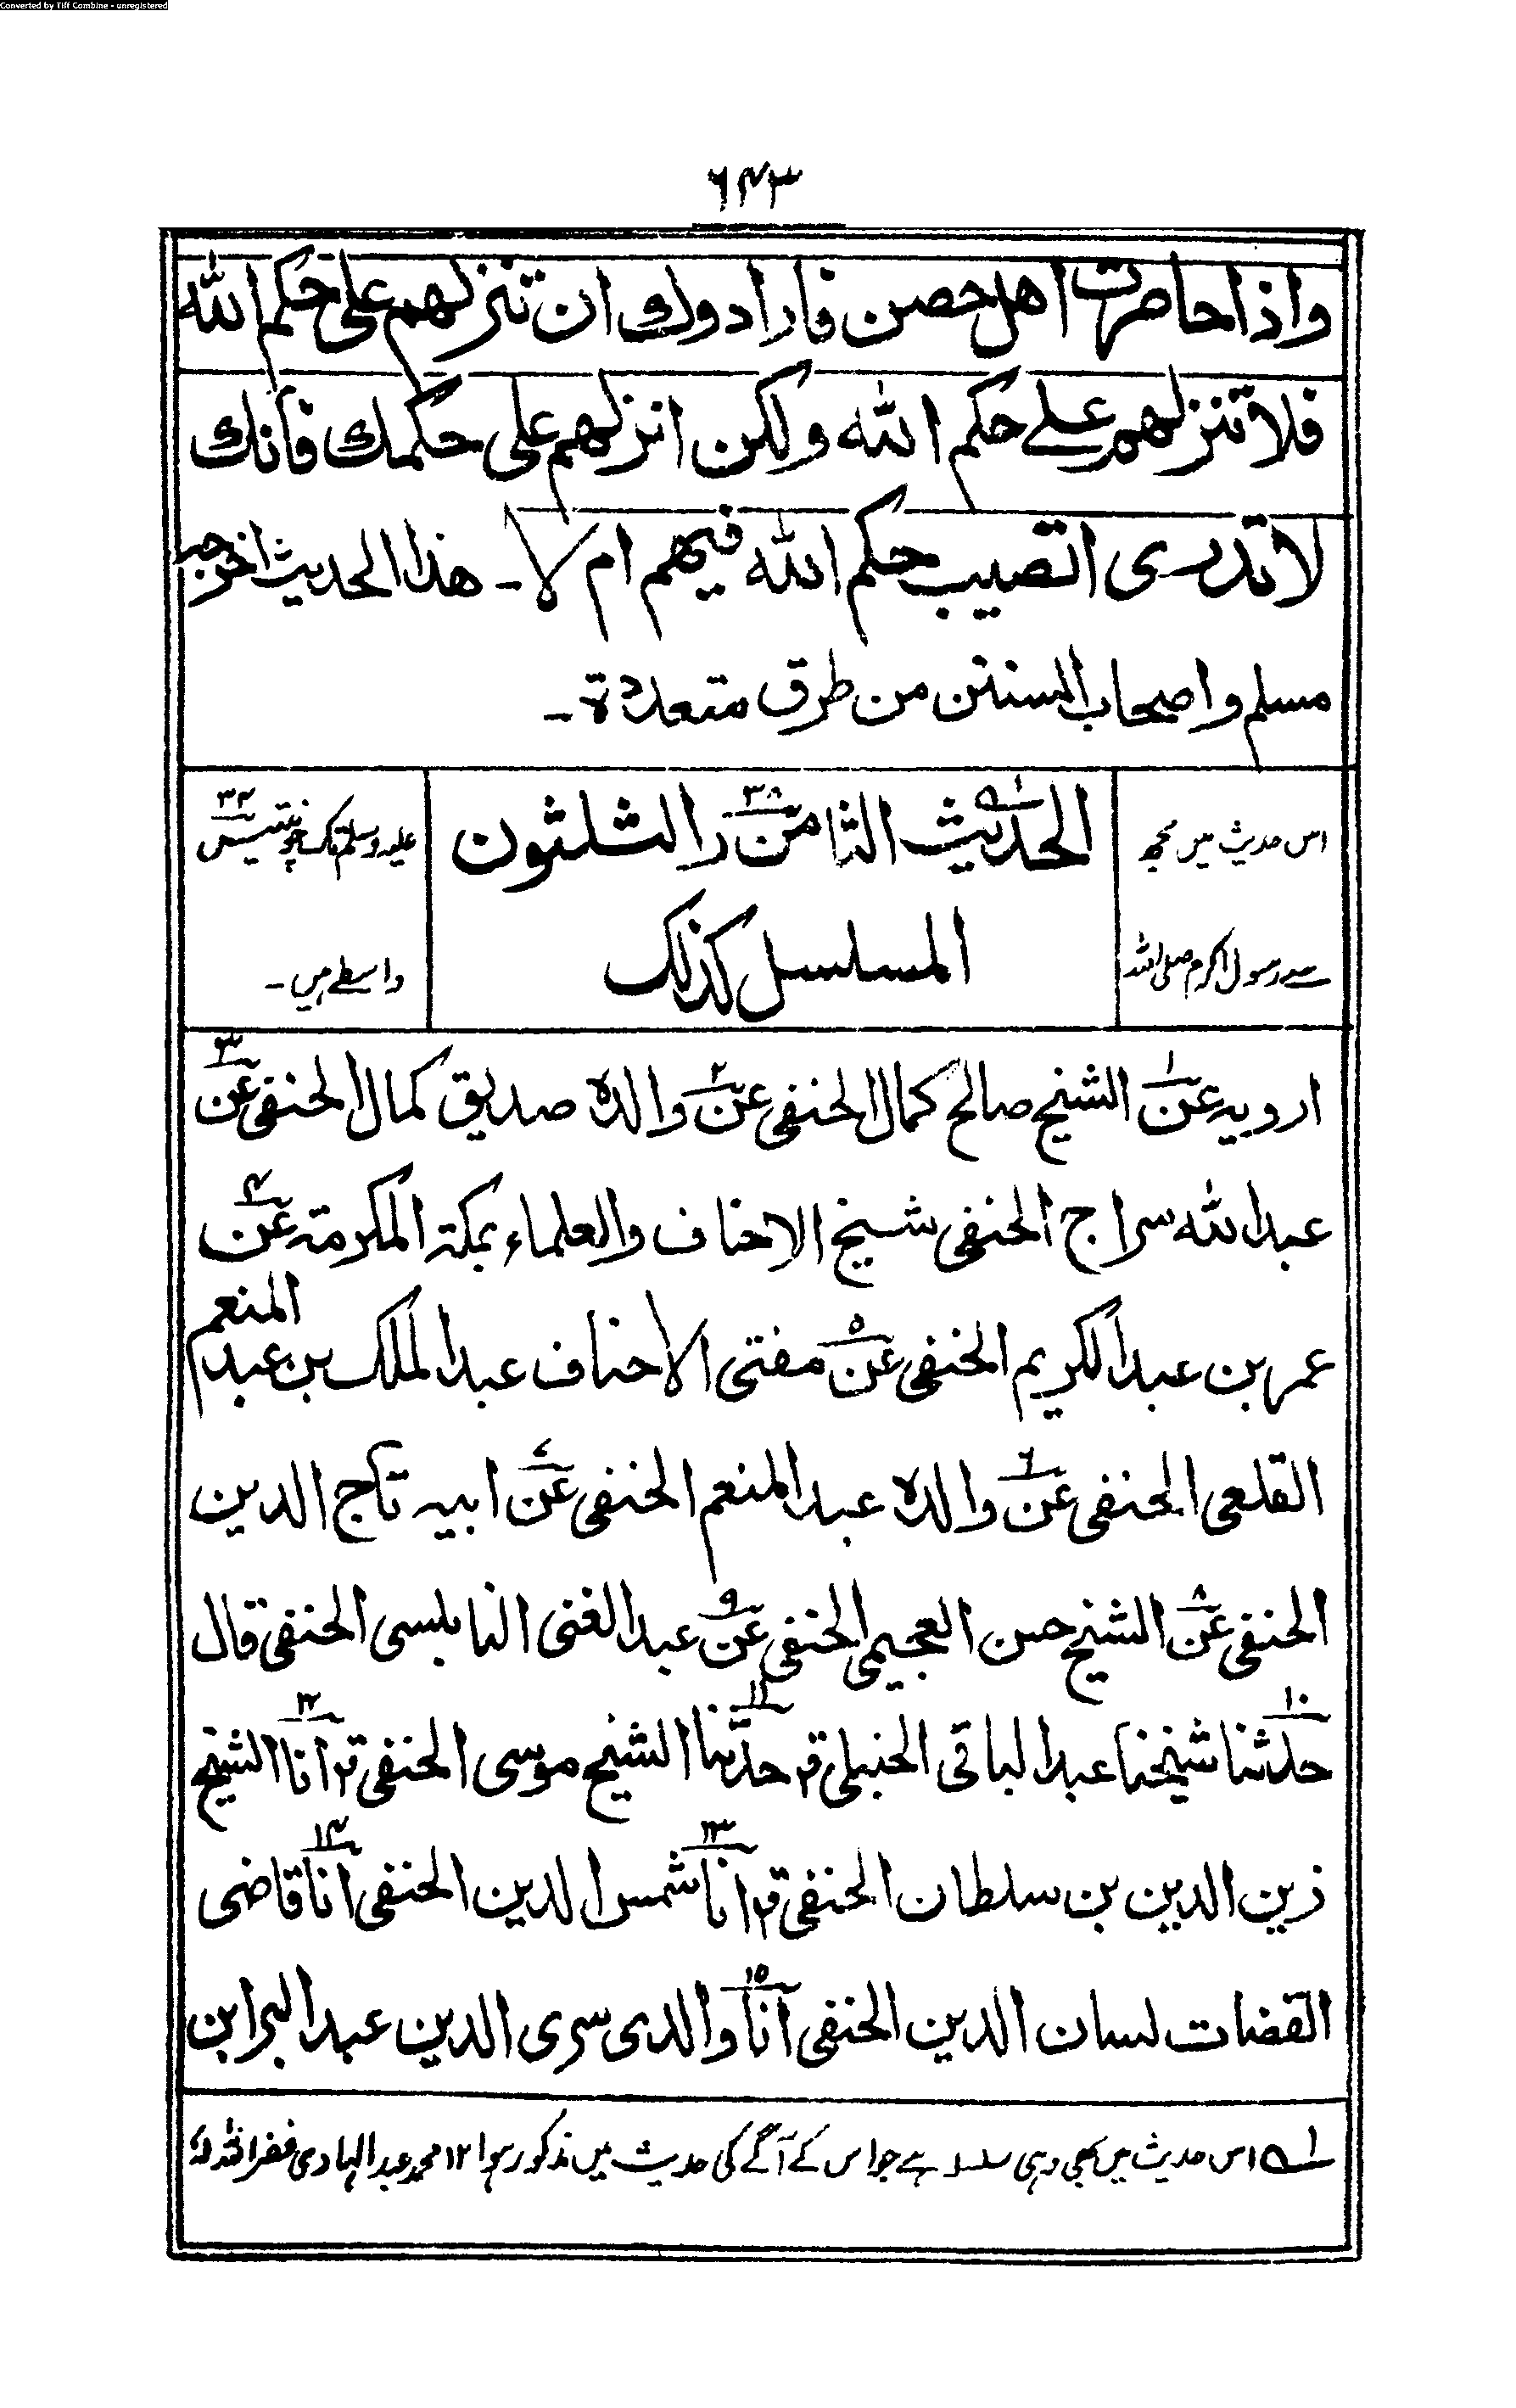 Converted by Tiff Combine - unregistered
۶۴۳
واذا حاصرت اهل حصن فارادوك ان تنزلهم على حكم الله
فلا تنزلهم على حكم الله ولكن انزلهم على حكمك فأنك
لا تدرى اتصيب حكم الله فيهم ام لا۔ هذا الحديث اخرجه
مسلم واصحاب السنن من طرق متعددة۔
اس حدیث میں مجھ
سے رسول اکرم صلی اللہ
الحديث الثامن والثلثون ۳۸
المسلسل كذلك
علیہ وسلم تک چونتیس ۳۴
واسطے ہیں۔
ارويه عن۱ الشيخ صالح كمال الحنفى عن۲ والده صديق كمال الحنفى عن۳
عبد الله سراج الحنفى شيخ الاحناف والعلماء بمكة المكرمة عن۴
عمر بن عبد الكريم الحنفى عن۵ مفتى الاحناف عبد الملك بن عبد المنعم
القلعى الحنفى عن۶ والده عبد المنعم الحنفى عن۷ ابيه تاج الدين
الحنفى عن۸ الشيخ حسن العجيمى الحنفى عن۹ عبد الغنى النابلسى الحنفى قال
حدثنا۱۰ شيخنا عبد الباقى الحنبلى قال حدثنا۱۱ الشيخ موسى الحنفى قال انا۱۲ الشيخ
زين الدين بن سلطان الحنفى قال انا۱۳ شمس الدين الحنفى انا۱۴ قاضى
القضات لسان الدين الحنفى انا۱۵ والدى سرى الدين عبد البر ابن
۱؎ اس حدیث میں بھی وہی سلسلہ ہے جو اس کے آگے کی حدیث میں مذکور ہوا ۱۲ محمد عبد الہادی غفر اللہ لہٗ